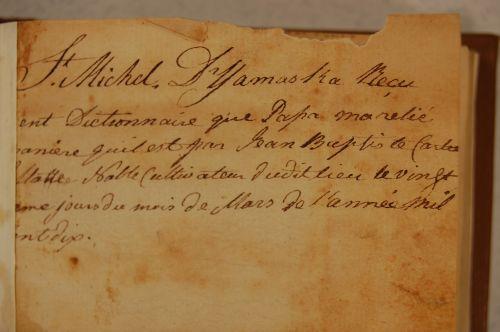 St. Michel. D'Yamaska Reçu
ent Dictionnaire que Papa ma relié
anière qu'il est par Jean Baptiste
Noble Cultivateur dudit lieu le vingt
eme jours du mois de Mars de l'année Mil
nt dix.